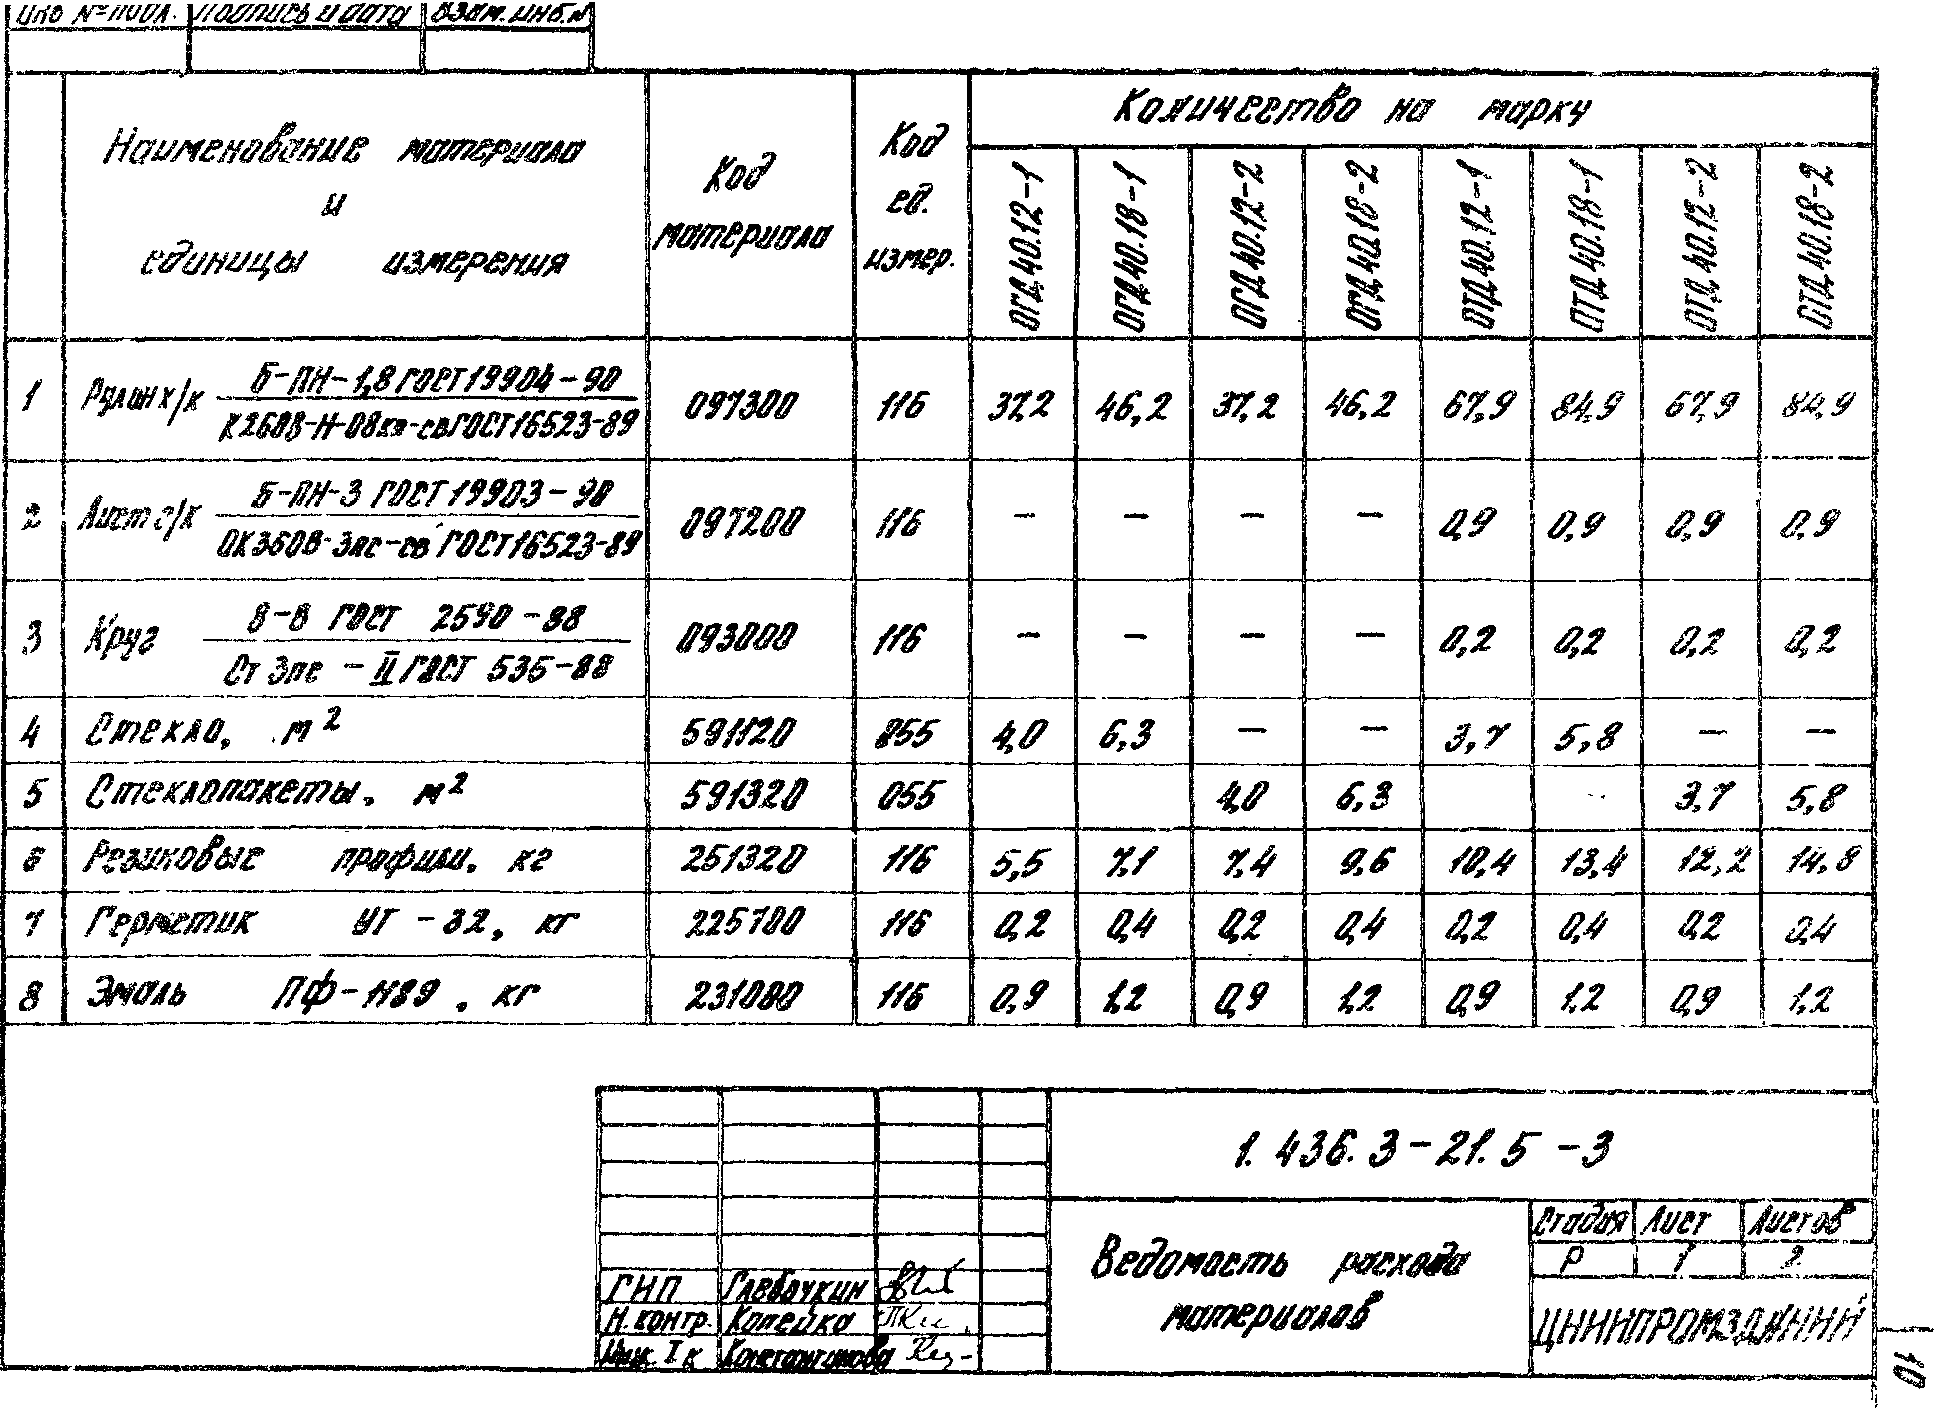 Инв № подл. Подпись и дата Взам. инв. №
Наименование материала и единицы измерения Код материала Код ед. измер. Количество на марку
ОГД 40.12-1 ОГД 40.18-1 ОГД 40.12-2 ОГД 40.18-2 ОТД 40.12-1 ОТД 40.18-1 ОТД 40.12-2 ОТД 40.18-2
1 Рулон х/к Б-ПН-1,8 ГОСТ 19904-90 097300 116 37,2 46,2 37,2 46,2 67,9 84,9 67,9 84,9
К260В-Н-08кп-св ГОСТ 16523-89
2 Лист г/к Б-ПН-3 ГОСТ 19903-90 097200 116 — — — — 0,9 0,9 0,9 0,9
ОК360В-3пс-св ГОСТ 16523-89
3 Круг 8-В ГОСТ 2590-88 093000 116 — — — — 0,2 0,2 0,2 0,2
Ст 3пс - II ГОСТ 535-88
4 Стекло, м² 591120 055 4,0 6,3 — — 3,7 5,8 — —
5 Стеклопакеты, м² 591320 055 4,0 6,3 3,7 5,8
6 Резиновые профили, кг 251320 116 5,5 7,1 7,4 9,6 10,4 13,4 12,2 14,8
7 Герметик УТ-32, кг 225700 116 0,2 0,4 0,2 0,4 0,2 0,4 0,2 0,4
8 Эмаль ПФ-1189, кг 231000 116 0,9 1,2 0,9 1,2 0,9 1,2 0,9 1,2
1.436.3-21.5-3
Ведомость расхода
материалов
Стадия Лист Листов
Р 1 2
ЦНИИПРОМЗДАНИЙ
ГИП
Н.контр. Копейка
Инж. I к Константинова
10